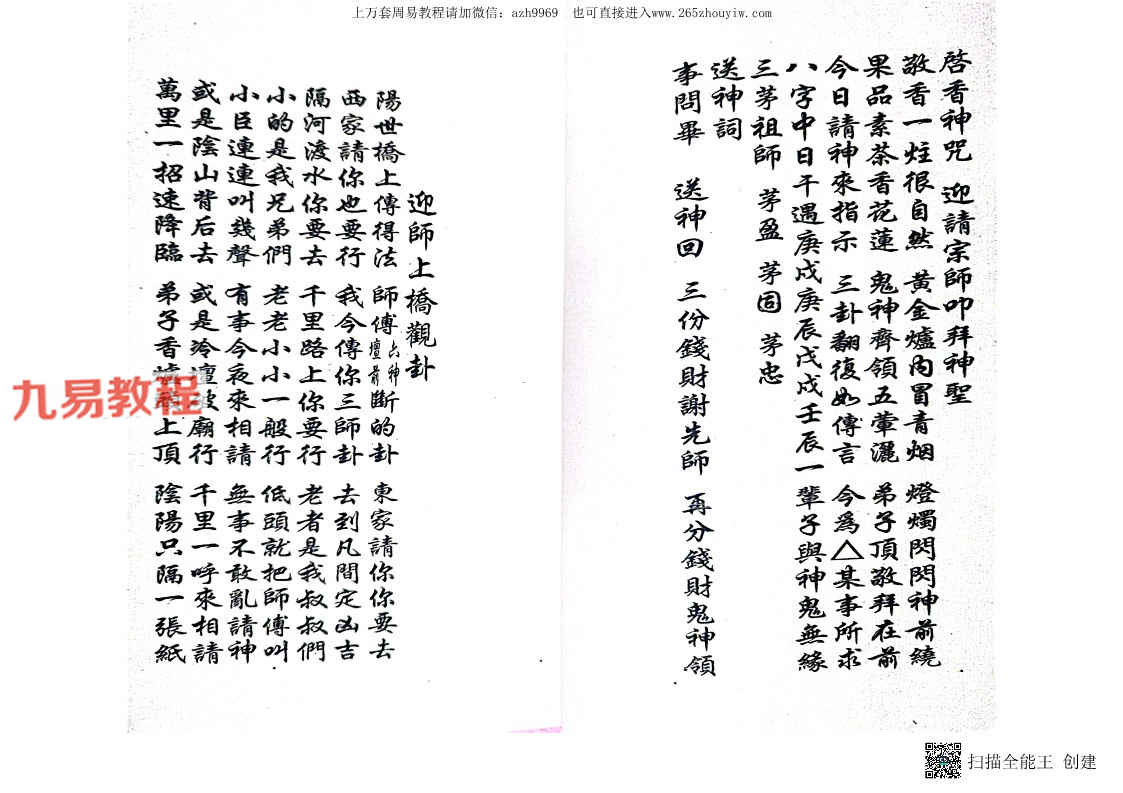 上万套周易教程请加微信：azh9969　也可直接进入www.265zhouyiw.com
啓香神咒　迎請宗師叩拜神聖
敬香一炷很自然　黃金爐內冒青烟　燈燭閃閃神前繞
果品素茶香花蓮　鬼神齊領五葷灑　弟子頂敬拜在前
今日請神來指示　三卦翻復如傳言　今爲△某事所求
八字中日干遇庚戌庚辰戊戌壬辰一輩子與神鬼無緣
三茅祖師　茅盈　茅固　茅忠
送神詞
事問畢　送神回　三份錢財謝先師　再分錢財鬼神領
迎師上橋觀卦
陽世橋上傳得法　師傅六神壇前斷的卦　東家請你你要去
西家請你也要行　我今傳你三師卦　去到凡間定凶吉
隔河渡水你要去　千里路上你要行　老者是我叔叔們
小的是我兄弟們　老老小小一般行　低頭就把師傅叫
小臣連連叫幾聲　有事今夜來相請　無事不敢亂請神
或是陰山背后去　或是冷壇破廟行　千里一呼來相請
萬里一招速降臨　弟子香爐頭上頂　陰陽只隔一張紙
九易教程
扫描全能王 创建